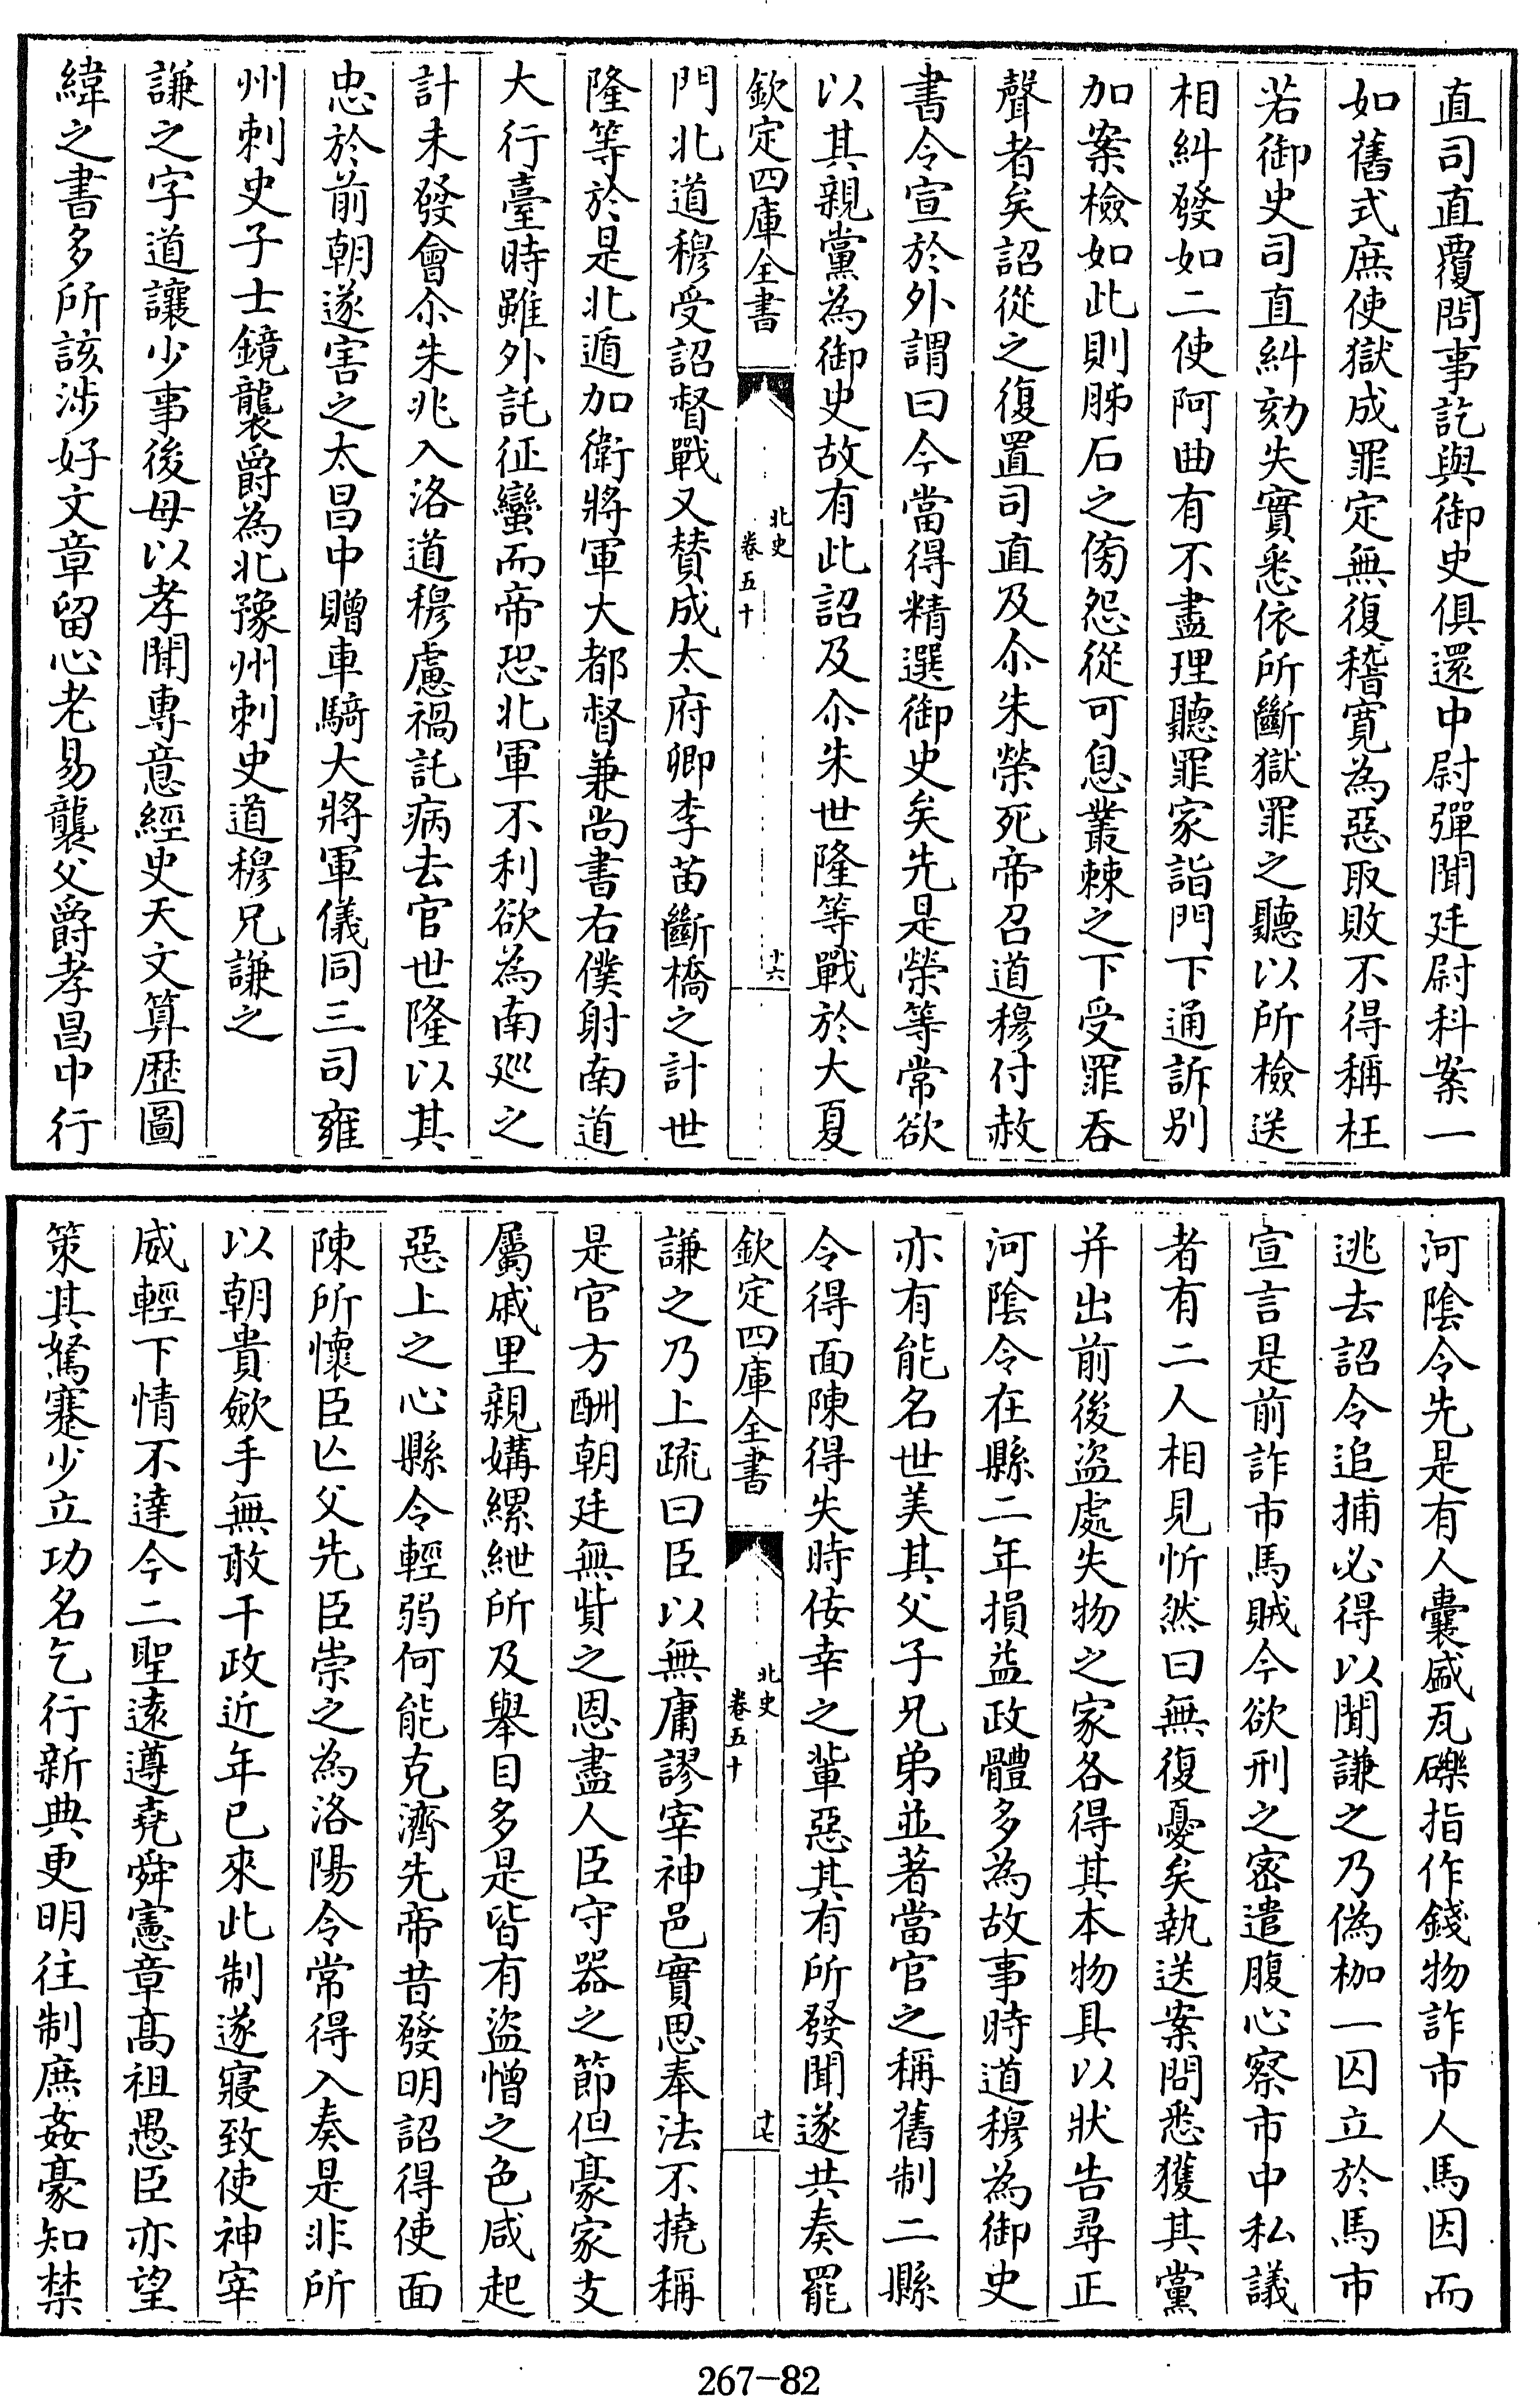 直司直覆問事訖與御史俱還中尉彈聞廷尉科案一
如舊式庶使獄成罪定無復稽寬為惡取敗不得稱枉
若御史司直糾劾失實悉依所斷獄罪之聽以所檢送
相糾發如二使阿曲有不盡理聽罪家詣門下通訴别
加案檢如此則肺石之傍怨從可息叢棘之下受罪吞
聲者矣詔從之復置司直及尒朱榮死帝召道穆付赦
書令宣於外謂曰今當得精選御史矣先是榮等常欲
以其親黨為御史故有此詔及尒朱世隆等戰於大夏
欽定四庫全書
北史
卷五十
十六
門北道穆受詔督戰又賛成太府卿李苗斷橋之計世
隆等於是北遁加衛將軍大都督兼尚書右僕射南道
大行臺時雖外託征蠻而帝恐北軍不利欲為南廵之
計未發會尒朱兆入洛道穆慮禍託病去官世隆以其
忠於前朝遂害之太昌中贈車騎大將軍儀同三司雍
州刺史子士鏡襲爵為北豫州刺史道穆兄謙之
謙之字道讓少事後母以孝聞專意經史天文算歷圖
緯之書多所該涉好文章留心老易襲父爵孝昌中行
河隂令先是有人囊盛瓦礫指作錢物詐市人馬因而
逃去詔令追捕必得以聞謙之乃偽枷一囚立於馬市
宣言是前詐市馬賊今欲刑之密遣腹心察市中私議
者有二人相見忻然曰無復憂矣執送案問悉獲其黨
并出前後盜處失物之家各得其本物具以狀告尋正
河隂令在縣二年損益政體多為故事時道穆為御史
亦有能名世美其父子兄弟並著當官之稱舊制二縣
令得面陳得失時佞幸之輩惡其有所發聞遂共奏罷
欽定四庫全書
北史
卷五十
十七
謙之乃上疏曰臣以無庸謬宰神邑實思奉法不撓稱
是官方酬朝廷無貲之恩盡人臣守器之節但豪家支
屬戚里親媾縲紲所及舉目多是皆有盜憎之色咸起
惡上之心縣令輕弱何能克濟先帝昔發明詔得使面
陳所懷臣亾父先臣崇之為洛陽令常得入奏是非所
以朝貴歛手無敢干政近年已來此制遂寢致使神宰
威輕下情不達今二聖遠遵堯舜憲章髙祖愚臣亦望
策其駑蹇少立功名乞行新典更明往制庶姦豪知禁
267-82